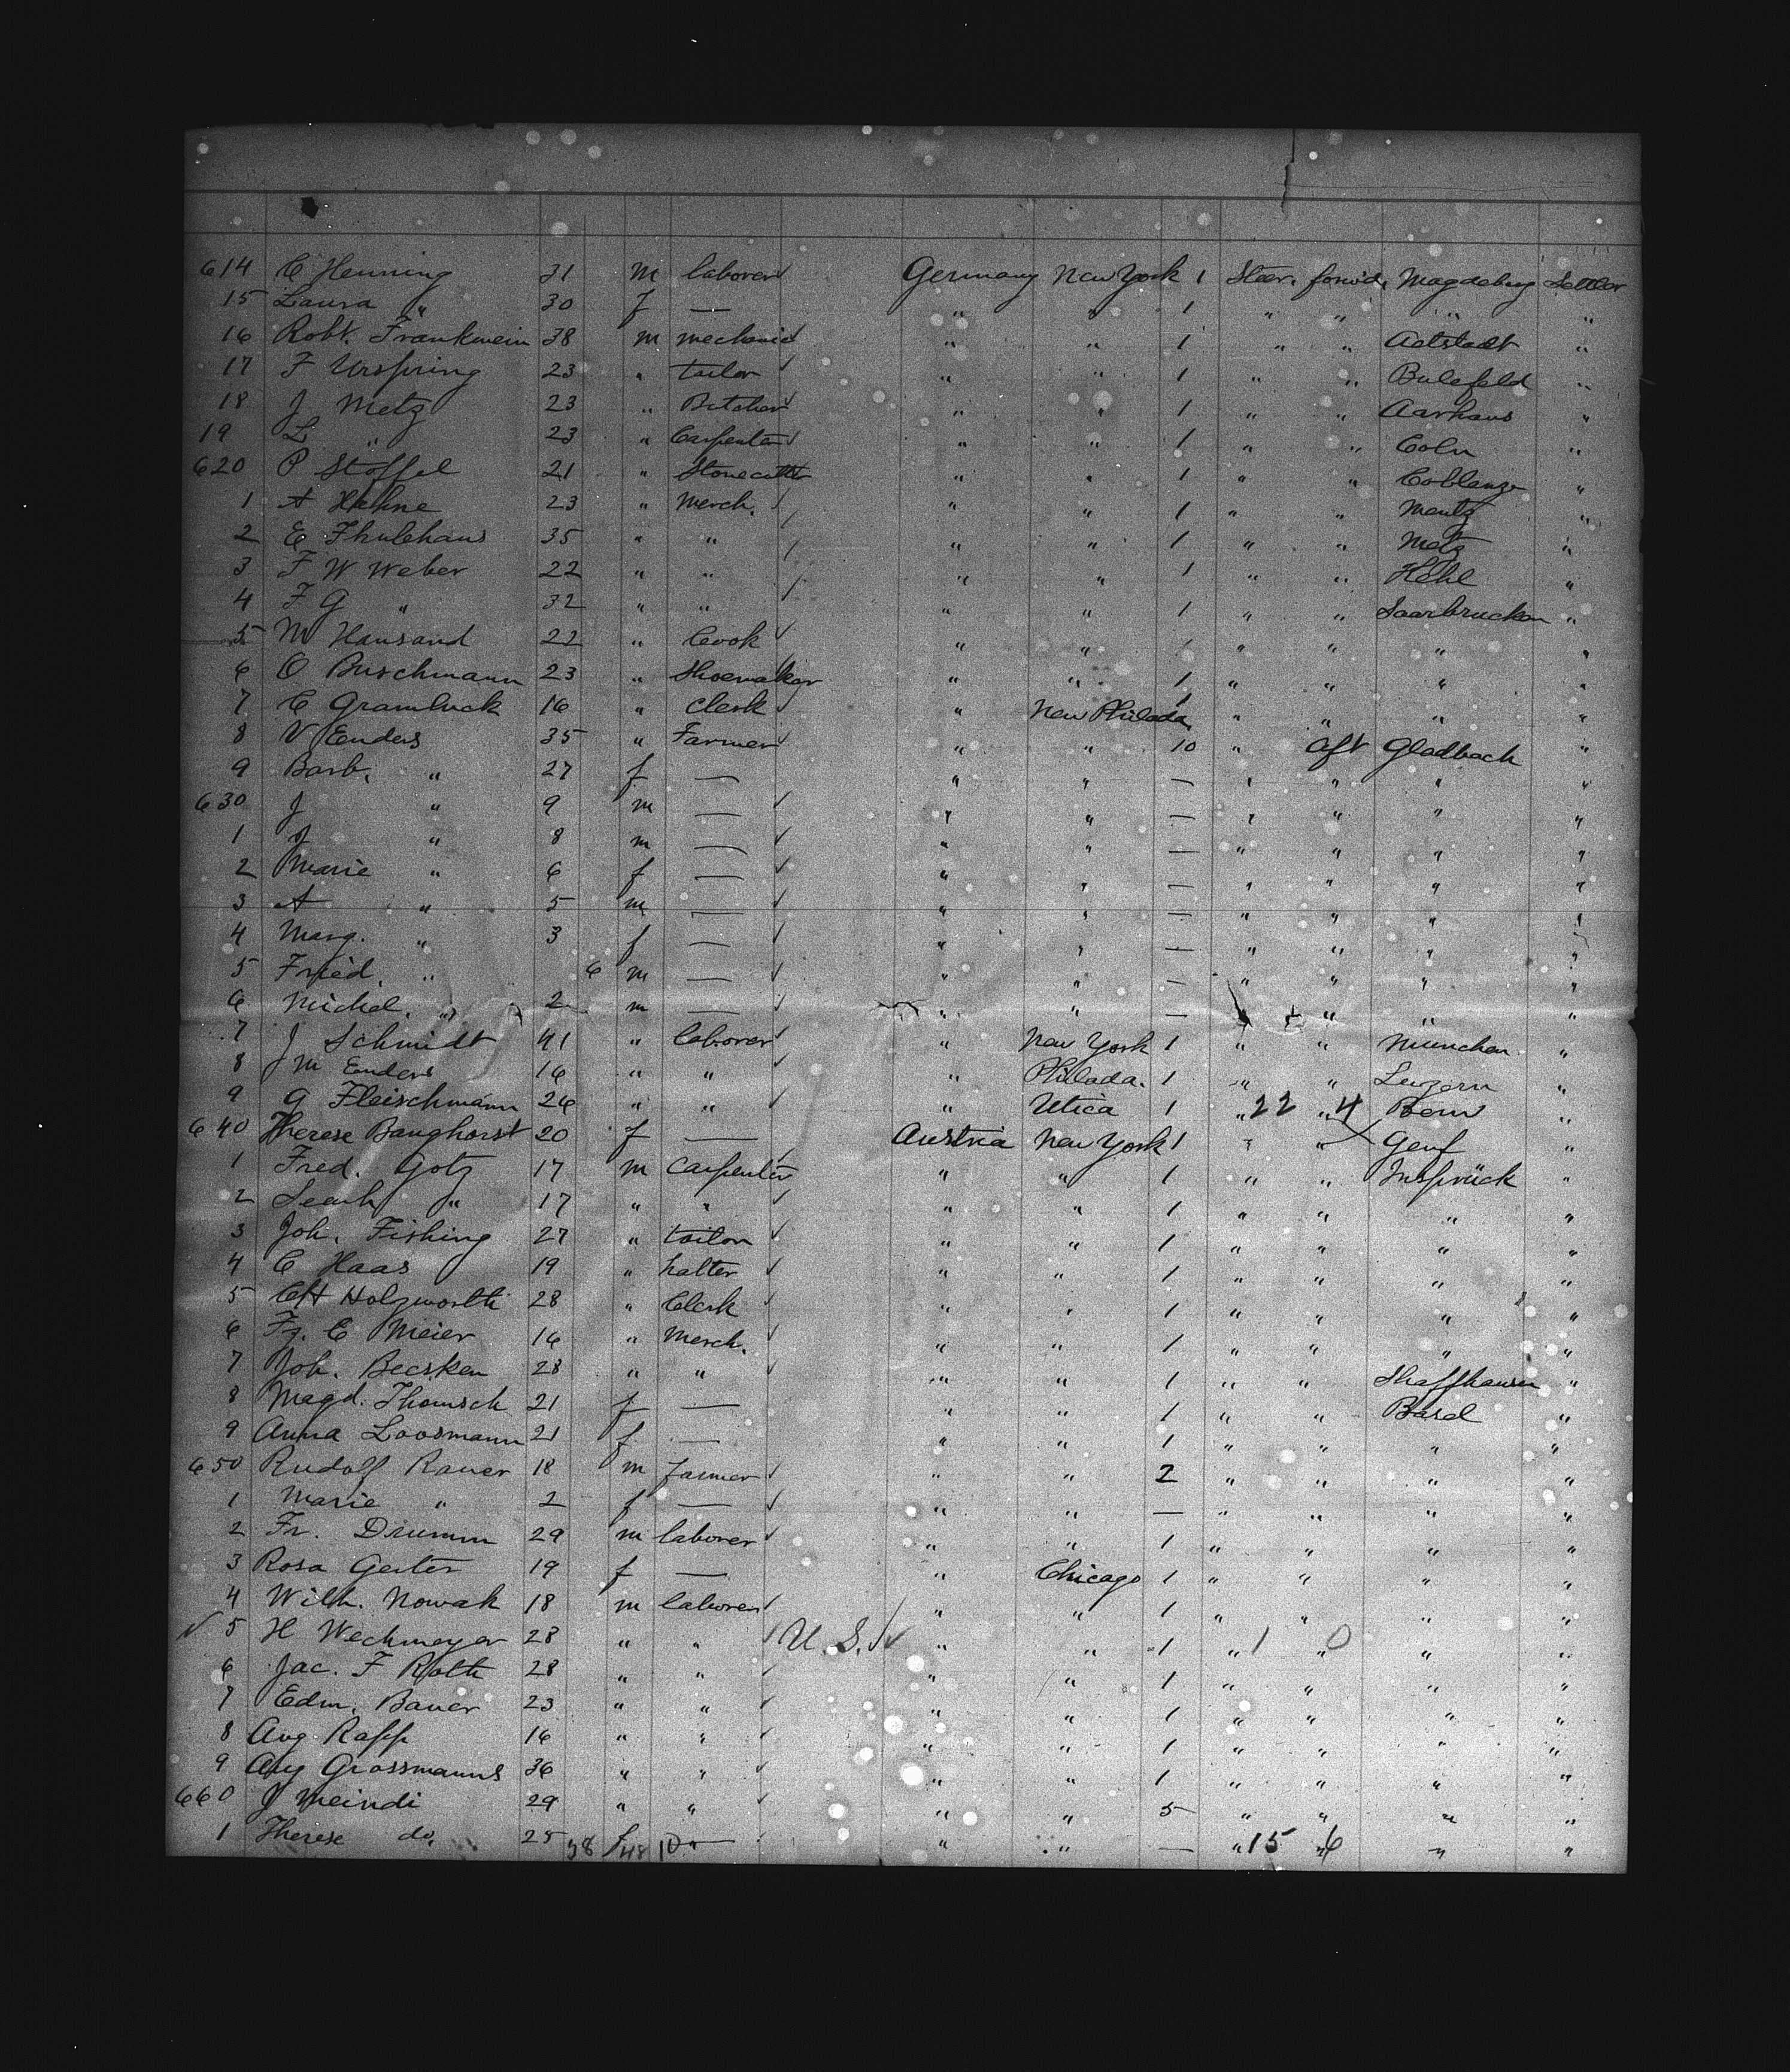 614 C Henning 31 m laborer Germany New York 1 Steer. forwd. Magdeburg Settler
15 Laura " 30 f — " " 1 " " " "
16 Robt. Frankwein 38 m mechanic " " 1 " " "
17 F Urspring 23 " tailor " " 1 " " Bulefeld "
18 J Metz 23 " Butcher " " 1 " " Aarhaus "
19 L " 23 " Carpenter " " 1 " " Coln "
620 P Stoffel 21 " Stonecutter " " 1 " " Coblenz "
1 A Hahne 23 " Merch. " " 1 " " Mentz "
2 E Thulehaus 35 " " " " 1 " " Metz "
3 F W Weber 22 " " " " 1 " " Kehl "
4 F G " 32 " " " " 1 " " Saarbrucken "
5 M Hausand 22 " Cook " " 1 " " " "
6 O Buschmann 23 " Shoemaker " " 1 " " " "
7 C Gramluck 16 " Clerk " New Philada 1 " " " "
8 V Enders 35 " Farmer " " 10 " aft Gladbach "
9 Barb. " 27 f — " " — " " " "
630 J " 9 m — " " — " " " "
1 J " 8 m — " " — " " " "
2 Marie " 6 f — " " — " " " "
3 A " 5 m — " " — " " " "
4 Marg. " 3 f — " " — " " " "
5 Fried. " 6 m — " " — " " " "
6 Michel. " 2 m — " " — " " "
7 J Schmidt 41 " laborer " New York 1 " " München "
8 M Enders 16 " " " Philada. 1 " " Luzern "
9 G Fleischmann 26 " " " Utica 1 " 22 " 4 Bern "
640 Therese Banghorst 20 f — Austria New York 1 " " Genf "
1 Fred. Gotz 17 m Carpenter " " 1 " " Inspruck "
2 " 17 " " " " 1 " " " "
3 Joh. Fishing 27 " tailor " " 1 " " " "
4 C Haas 19 " hatter " " 1 " " " "
5 CH Holzworth 28 " Clerk " " 1 " " " "
6 Fz. C Meier 16 " Merch. " " 1 " " " "
7 Joh. Beesken 28 " " " " 1 " " Shaffhausen "
8 Magd. Thomsch 21 f — " " 1 " " Basel "
9 Anna Loosmann 21 f — " " 1 " " " "
650 Rudolf Rauer 18 m farmer " " 2 " " " "
1 Marie " 2 f — " " — " " " "
2 Fr. Drumm 29 m laborer " " 1 " " " "
3 Rosa Gerter 19 f — " Chicago 1 " " " "
4 Wilh. Nowak 18 m laborer " " 1 " " " "
5 H Wechmeyer 28 " " U. S. " " 1 " 1 " 0 " "
6 Jac. F Roth 28 " " " " 1 " " " "
7 Edm. Bauer 23 " " " " 1 " " " "
8 Aug Rapp 16 " " " " 1 " " " "
9 Aug Grossmanns 36 " " " " 1 " " " "
660 J Meindi 29 " " " " 5 " " " "
1 Therese do. 25 38 f 48 10 — " " — " 15 " 6 " "